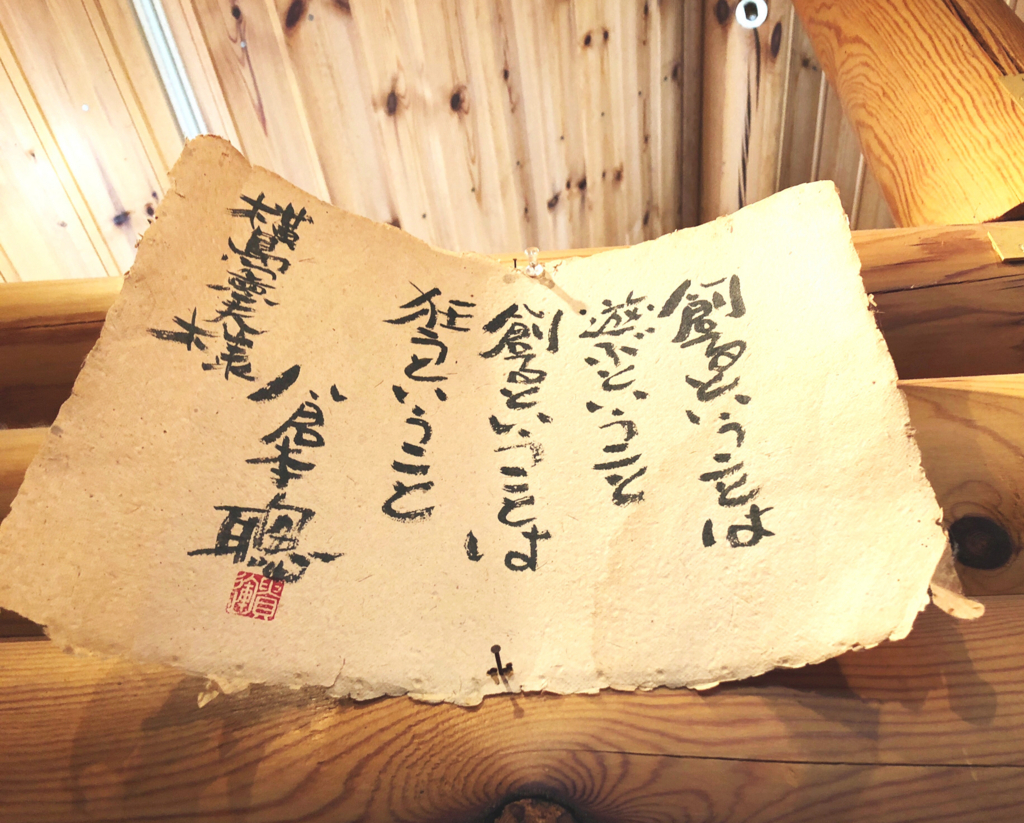 創るということは
遊ぶということ
創るということは
狂うということ
倉本聰
横島
様